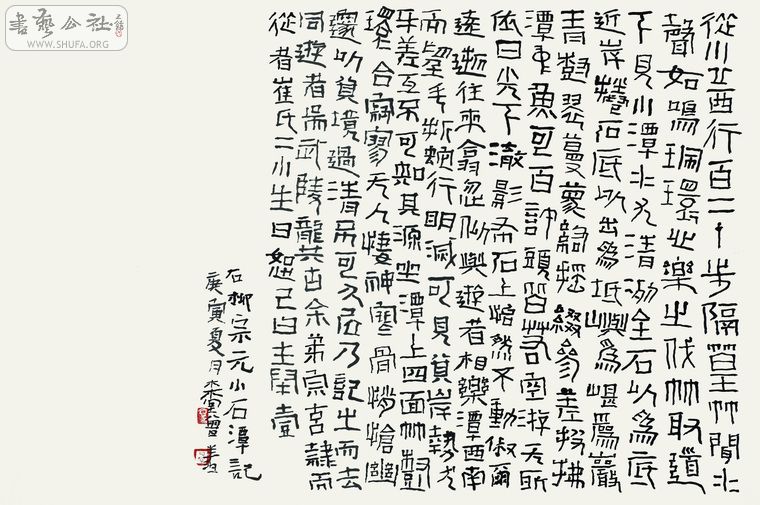 從小丘西行百二十步隔篁竹聞水
聲如鳴珮環心樂之伐竹取道
下見小潭水尤清洌全石以為底
近岸卷石底以出為坻嶼為嵁為巖
青樹翠蔓蒙絡搖綴參差披拂
潭中魚可百許頭皆若空游无所
依日光下澈影布石上怡然不動俶爾
遠逝往來翕忽似與遊者相樂潭西南
而望斗折蛇行明滅可見其岸勢犬
牙差互不可知其源坐潭上四面竹樹
環合寂寥无人悽神寒骨悄愴幽
邃以其境過清不可久居乃記之而去
同遊者吳武陵龔古余弟宗玄隸而
從者崔氏二小生曰恕己曰奉壹
右柳宗元小石潭記
庚寅夏月
書藝公社
WWW.SHUFA.ORG